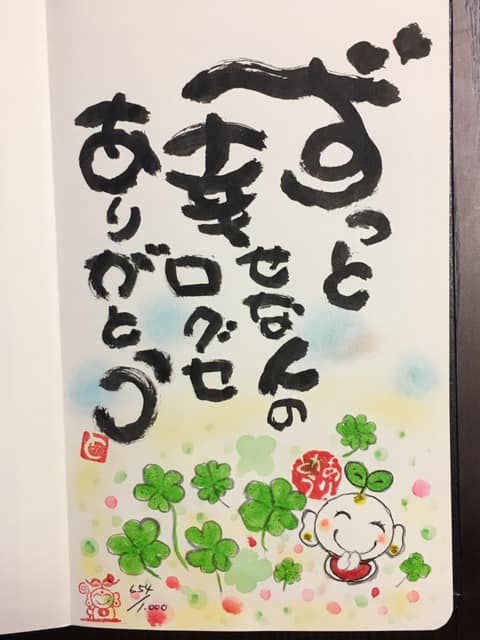 ずっと
幸せなんの
口グセ
ありがとう
654/1.000